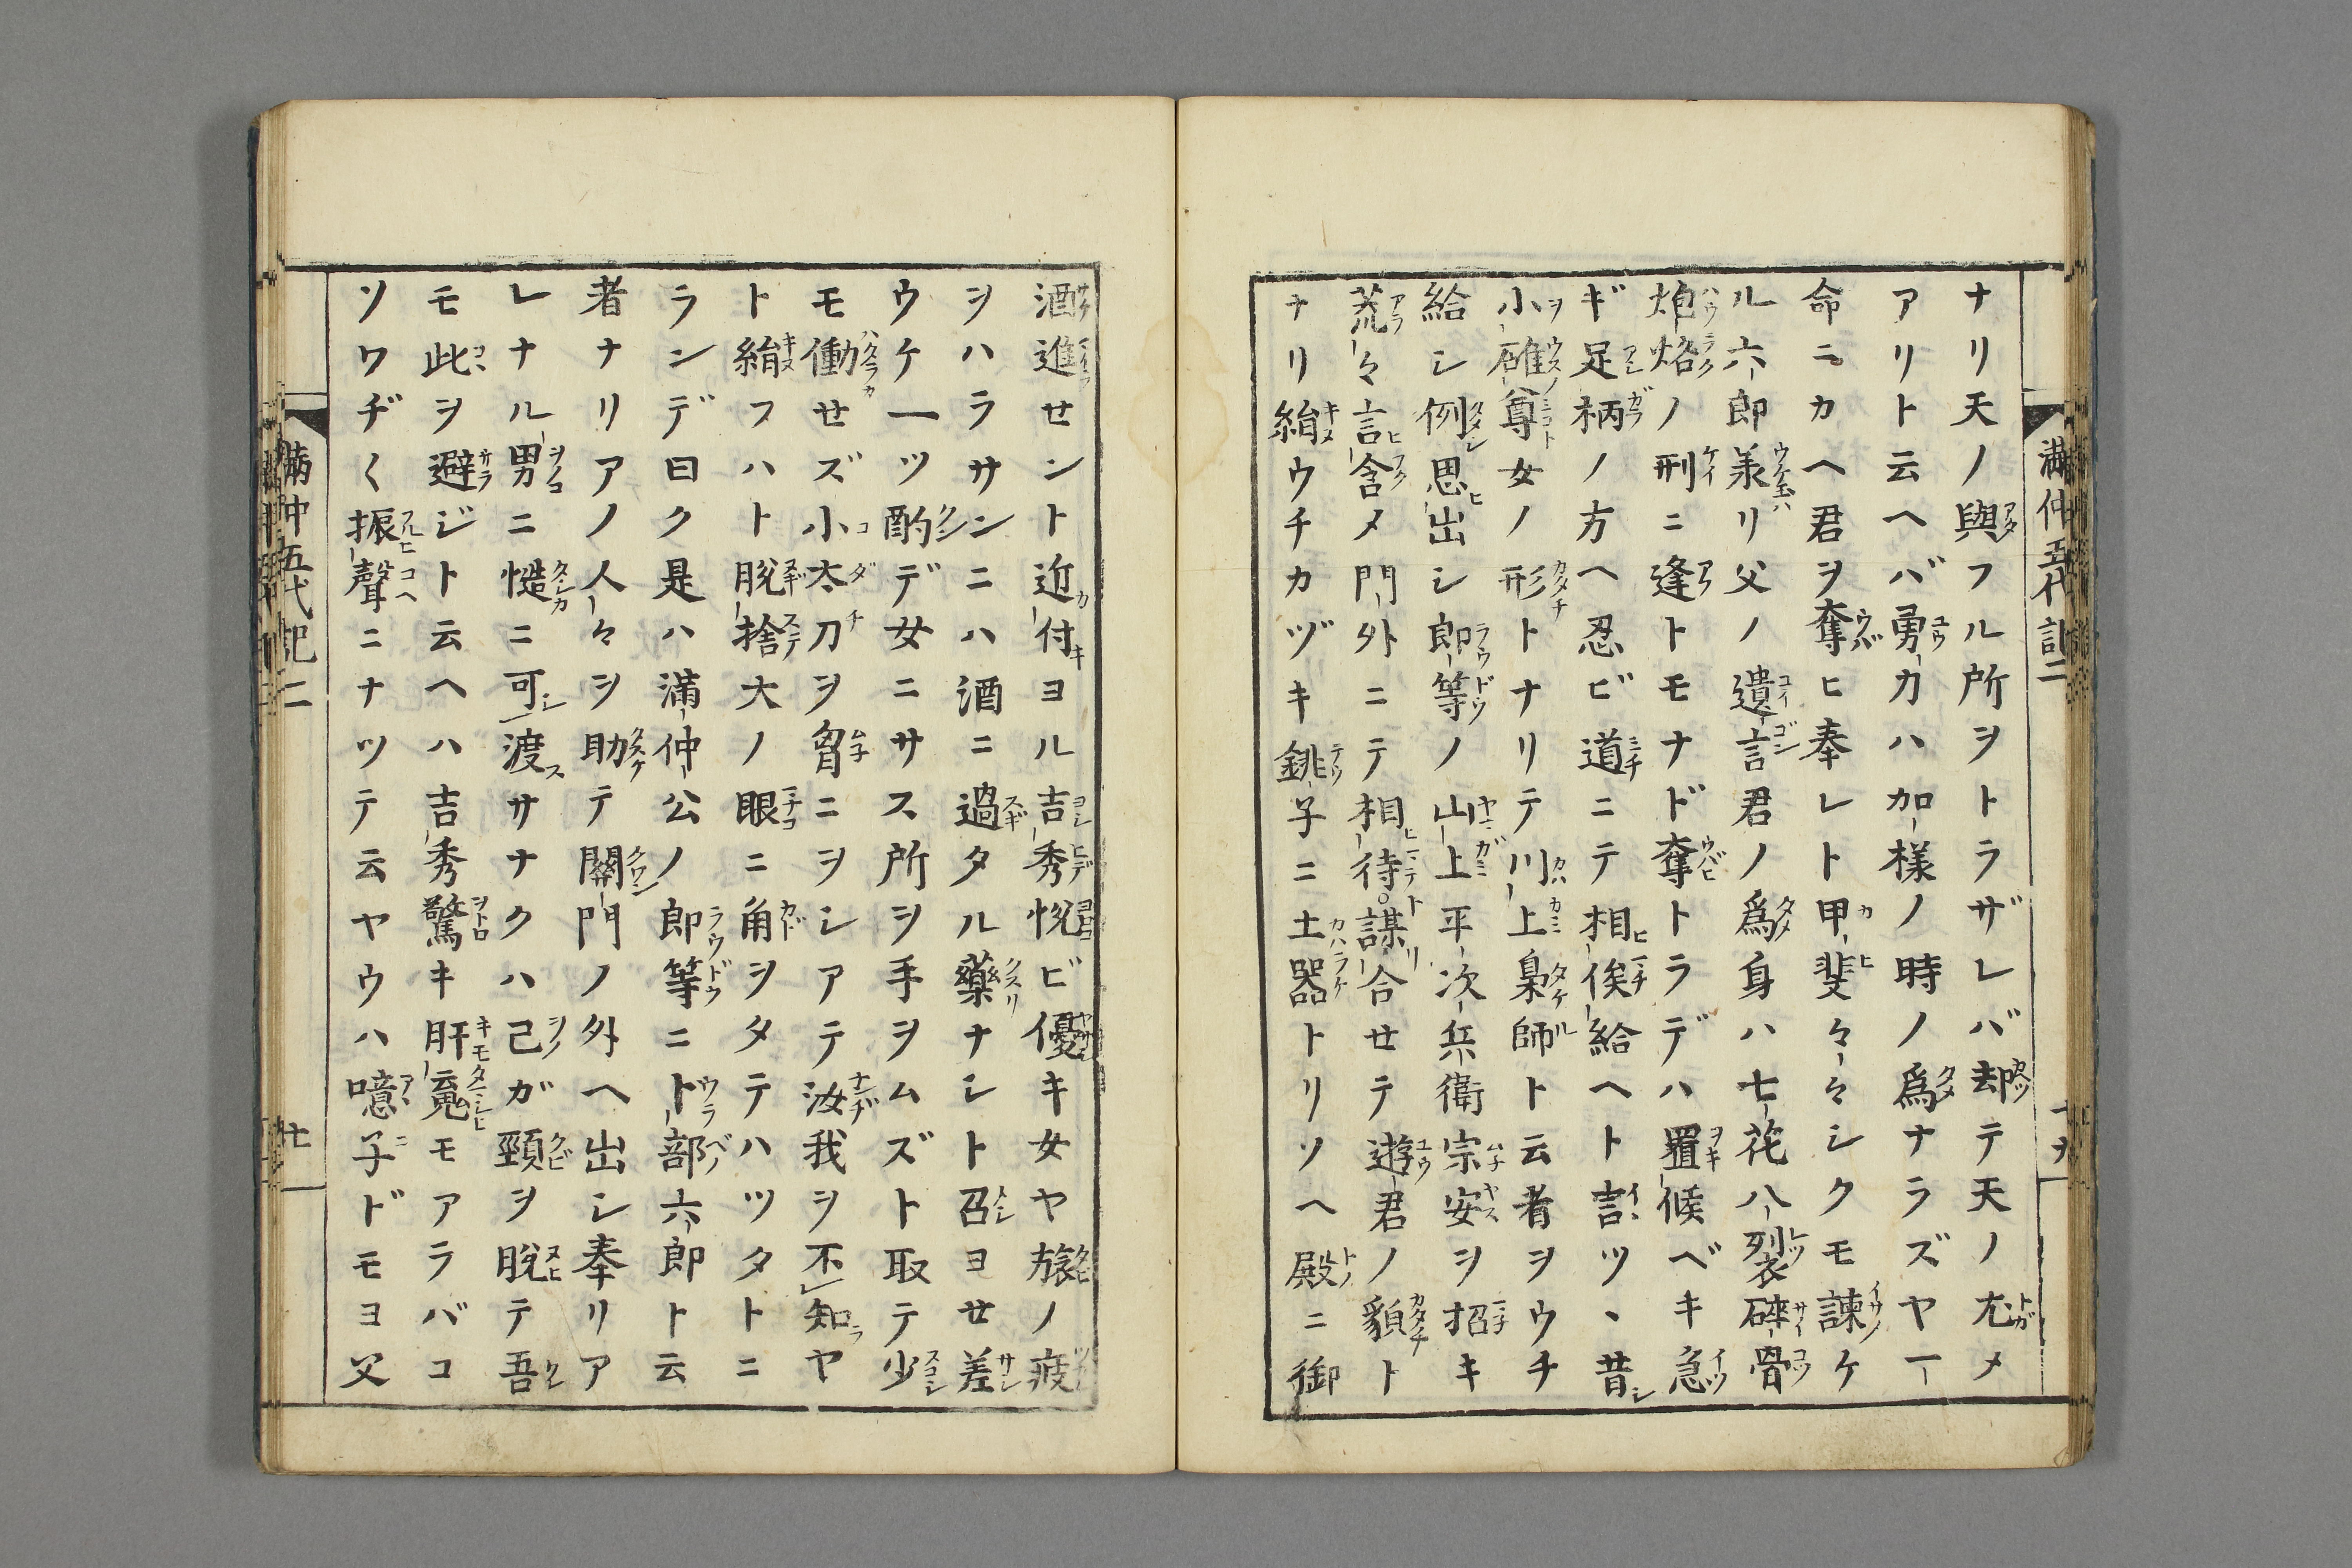 ナリ天ノ與フル所ヲトラザレバ却テ天ノ尤メ
アリト云ヘバ勇力ハ加様ノ時ノ爲ナラズヤ一
命ニカヘ君ヲ奪ヒ奉レト甲斐々々シクモ諫ケ
ル六郎羕リ父ノ遺言君ノ爲身ハ七花八裂碎骨
炮烙ノ刑ニ逢トモナド奪トラデハ置候ベキ急
ギ足柄ノ方ヘ忍ビ道ニテ相俟給ヘト言ツヽ昔
小碓尊女ノ形トナリテ川上梟師ト云者ヲウチ
給シ例思出シ郎等ノ山上平次兵衛宗安ヲ招キ
荒々言含メ門外ニテ相待。謀合セテ遊君ノ貌ト
ナリ絹ウチカヅキ銚子ニ土器トリソヘ殿ニ御
満仲五代記二
十九
酒進せント近付ヨル吉秀悦ビ優キ女ヤ旅ノ疲
ヲハラサンニハ酒ニ過タル藥ナシト召ヨせ差
ウケ一ツ酌デ女ニサス所ヲ手ヲムズト取テ少
モ働せズ小太刀ヲ胷ニヲシアテ汝我ヲ不知ヤ
ト絹フハト脱捨大ノ眼ニ角ヲタテハツタトニ
ランデ曰ク是ハ滿仲公ノ郎等ニト部六郎ト云
者ナリアノ人々ヲ助テ關門ノ外ヘ出シ奉リア
レナル男ニ慥ニ可渡サナクハ己ガ頸ヲ脱テ吾
モ此ヲ避ジト云ヘハ吉秀驚キ肝䰟モアラバコ
ソワヂ〱振聲ニナツテ云ヤウハ噫子ドモヨ父
満仲五代記二
廿